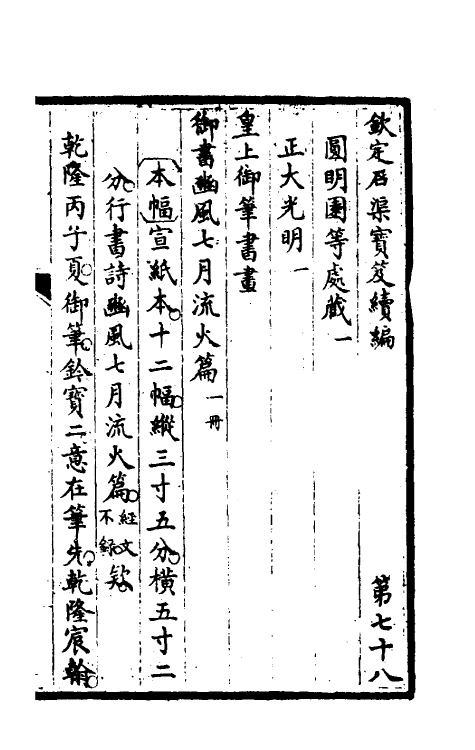 欽定石渠寶笈續編　第七十八
圓明園等處藏一
正大光明一
皇上御筆書畫
御書豳風七月流火篇一冊
本幅宣紙本。十二幅。縱三寸五分。橫五寸二
分。行書詩豳風七月流火篇。經文不錄。欵。
乾隆丙子夏。御筆。鈐寶二。意在筆先。乾隆宸翰。